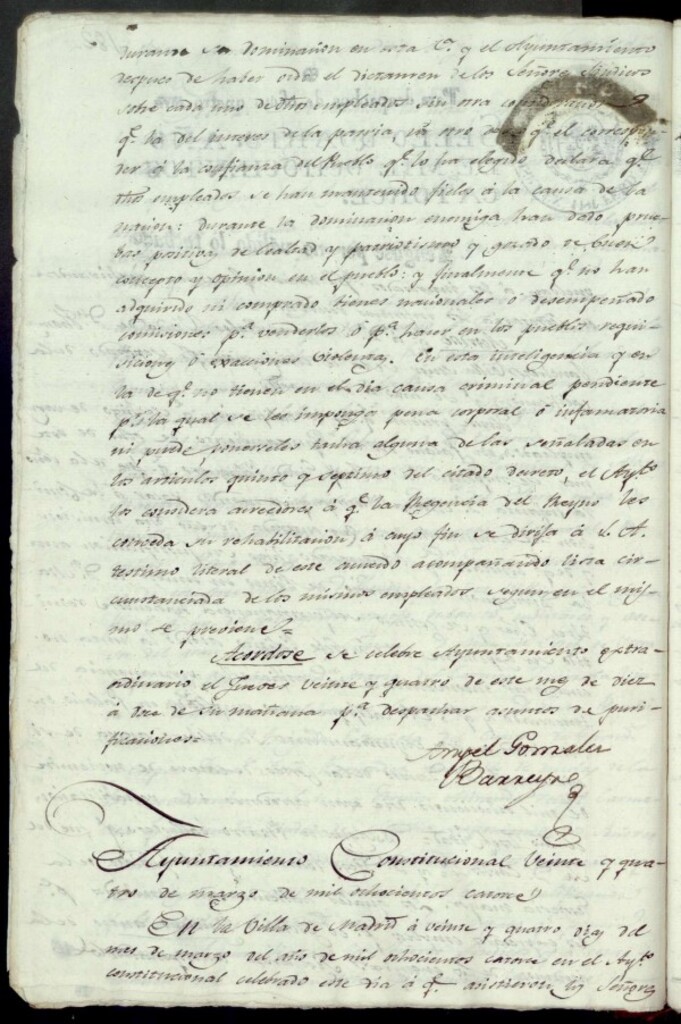 durante su dominacion en esta C.ᵉ y el Ayuntamiento
despues de haber oido el dictamen de los Señores Sindicos
sobre cada uno de dhos empleados sin otra consideracion
q.ᵉ la del interes de la patria ni otro deseo q.ᵉ el correspon-
der á la confianza del Pueblo q.ᵉ lo ha elegido declara q.ᵉ
dhos empleados se han mantenido fieles á la causa de la
nacion: durante la dominacion enemiga han dado prue-
bas positivas de lealtad y patriotismo y gozado de buen
concepto y opinion en el pueblo: y finalmente q.ᵉ no han
adquirido ni comprado bienes nacionales ó desempeñado
comisiones p.ᵃ venderlos ó p.ᵃ hacer en los pueblos requi-
siciones ó exacciones violentas. En esta inteligencia y en
la de q.ᵉ no tienen en el dia causa criminal pendiente
p.ʳ la qual se les imponga pena corporal ó infamatoria
ni puede ponerseles tacha alguna de las señaladas en
los articulos quinto y septimo del citado decreto, el Ay.ᵗᵒ
los considera acreedores á q.ᵉ la Regencia del Reyno les
conceda su rehabilitacion á cuyo fin se dirija á S. A.
testimo literal de este acuerdo acompañando lista cir-
cunstanciada de los mismos empleados segun en el mis-
mo se previene=
Acordose se celebre Ayuntamiento extra-
ordinario el Jueves veinte y quatro de este mes de diez
á doce de su mañana p.ᵃ despachar asuntos de puri-
ficaciones=
Angel Gonzalez
Barreyro
Ayuntamiento Constitucional veinte y qua-
tro de marzo de mil ochocientos catorce
En la Villa de Madrid á veinte y quatro dias del
mes de marzo del año de mil ochocientos catorce en el Ay.ᵗᵒ
constitucional celebrado este dia á q.ᵉ asistieron los Señores